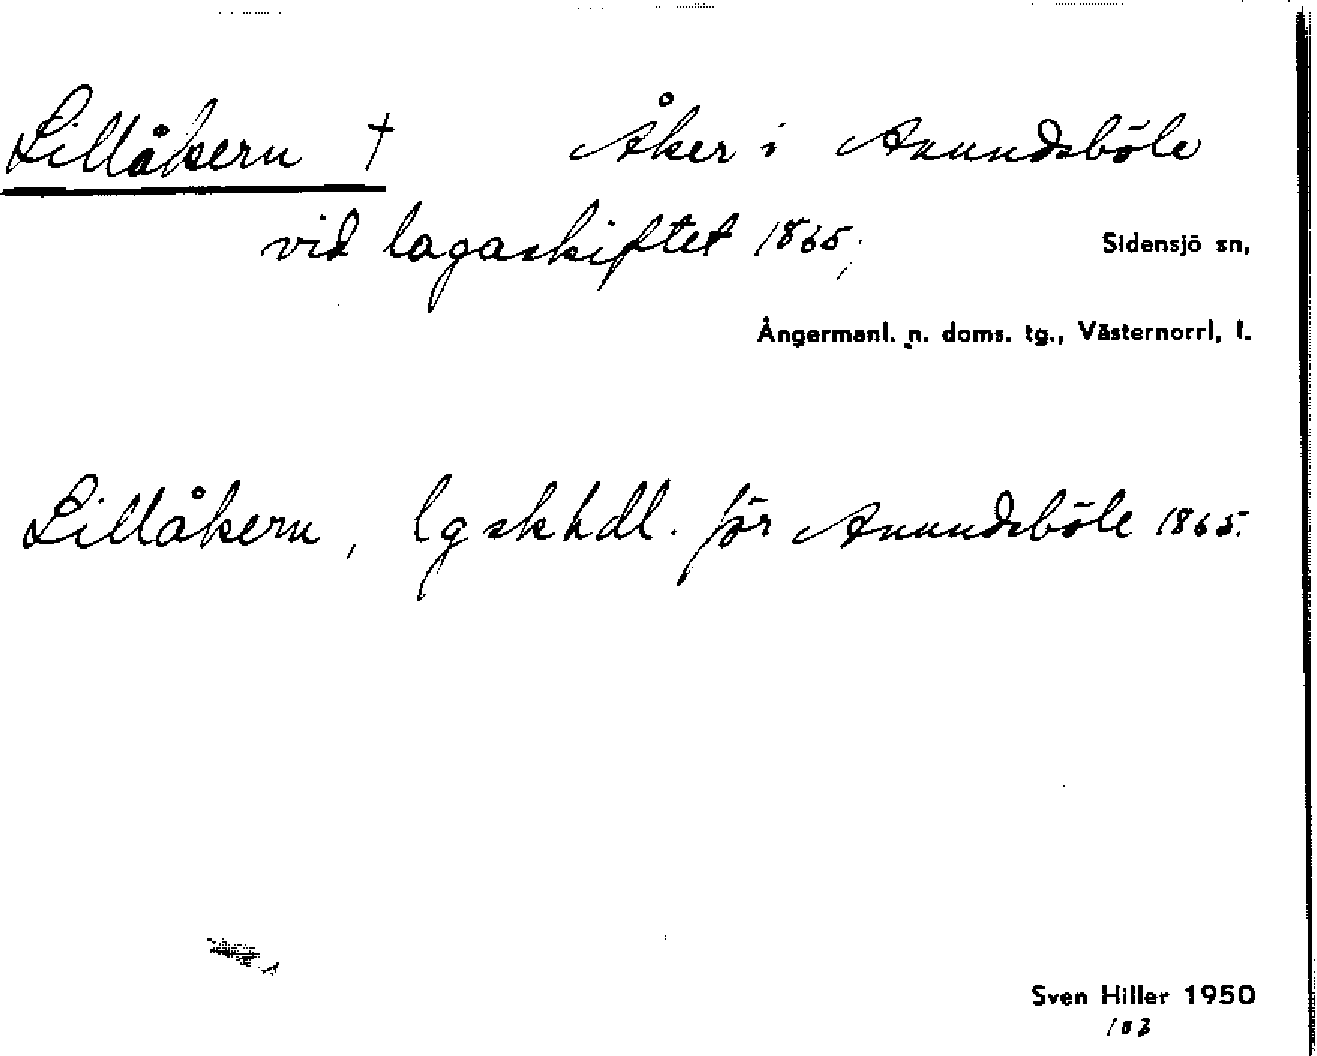 Lillåkern † Åker i Anundsböle
vid lagaskiftet 1865;
Sidensjö sn,
Ångermanl. n. doms. tg., Västernorrl, l.
Lillåkern, lgskhdl. för Anundsböle 1865.
Sven Hiller 1950
103